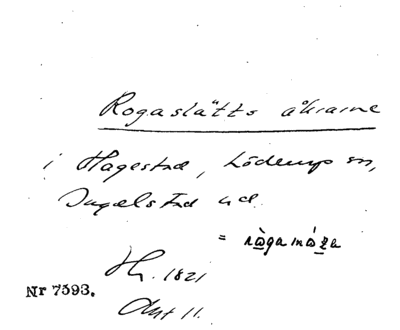 Rogaslätts åkrarne
i Hagestad, Löderup sn,
Ingelstad hd.
= 
Hr. 1821
Nr 7593.
Akt 11.